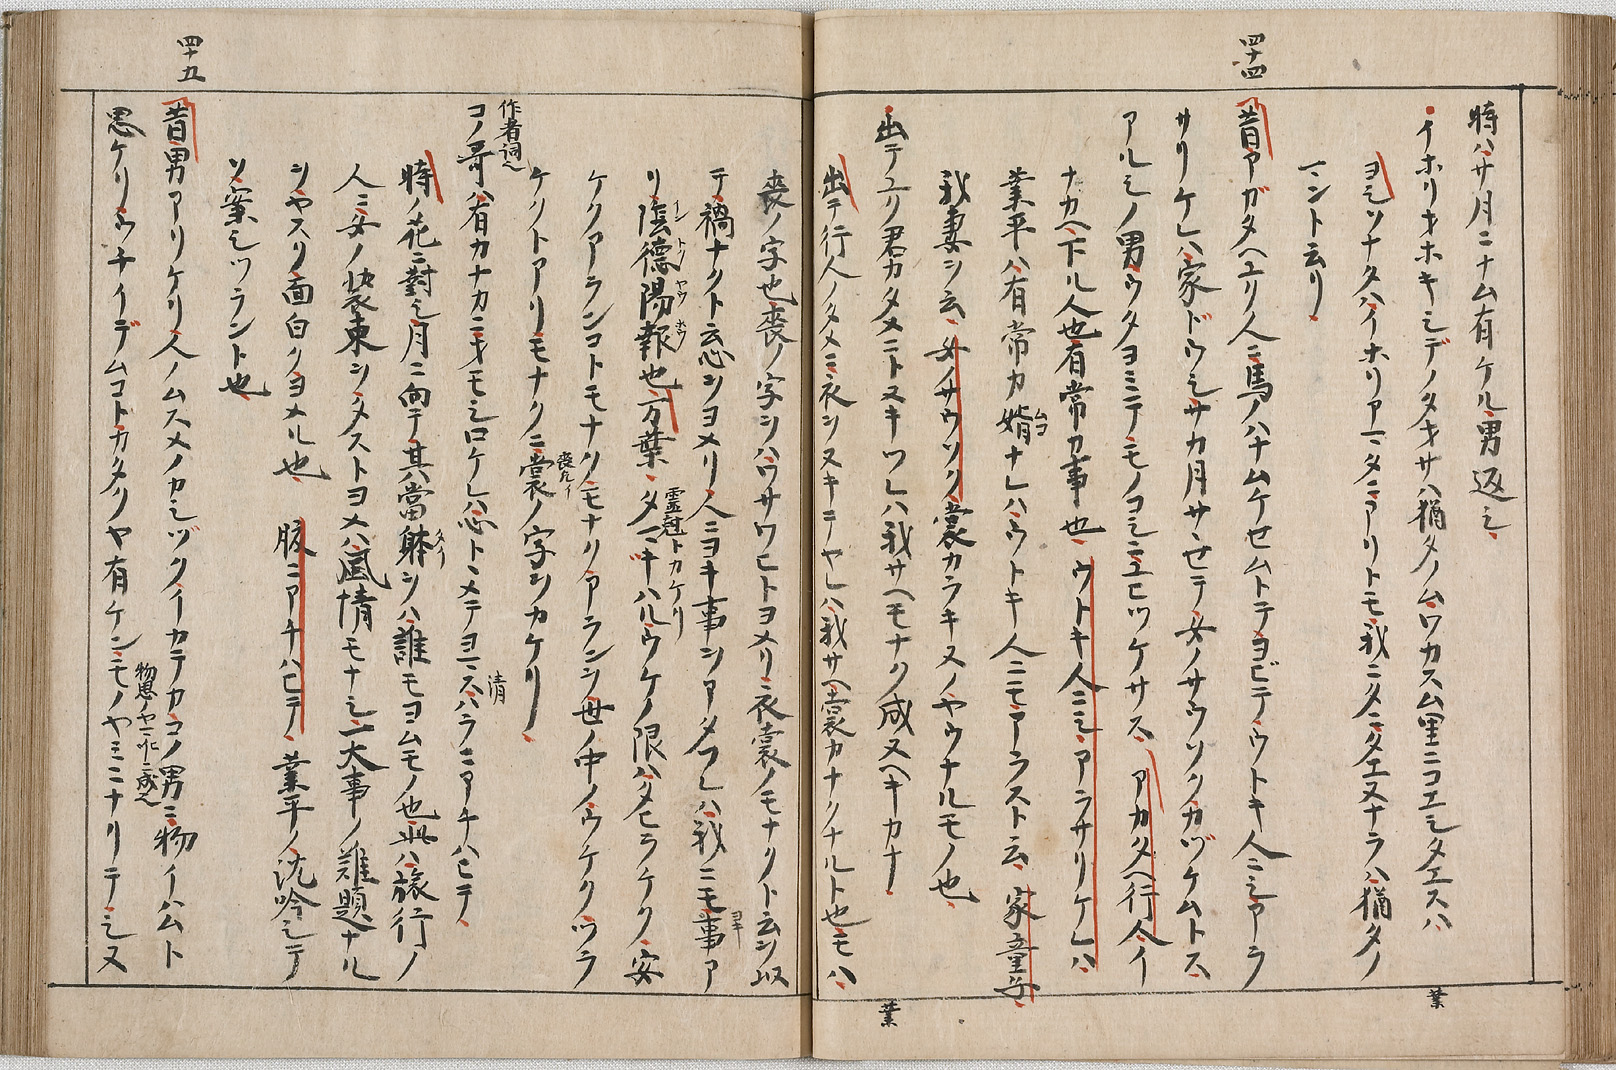 四十四
時ハサ月ニナム有ケル男返シ
イホリオホキシデノタオサハ猶タノムワカスム里ニコエシタエスハ 業
ヨミソナタハイホリアマタニアリトモ我ニタニタエスナラハ猶タノ
マント云リ
昔アガタヘユク人ニ馬ノハナムケセムトテヨビテウトキ人ニシアラ
サリケレハ家ドウシサカ月サヽセテ女ノサウソクカヅケムトス
アルシノ男ウタヨミテモノコシニユヒツケサス アカタヘ行人イ
ナカヘ下ル人也有常カ事也 ウトキ人ニシアラサリケレハ
業平ハ有常カ婿ナレハウトキ人ニモアラスト云 家童子
ムコ
我妻ヲ云 女ノサウソク 裳カラキヌノヤウナルモノ也
出テユク君カタメニトヌキツレハ我サヘモナク成ヌヘキカナ 業
出テ行人ノタメニ衣ヲヌキテヤレハ我サヘ裳カナクナルト也モハ
四十五
喪ノ字也喪ノ字ヲハワサワヒトヨメリ衣裳ノモナクト云ヲ以
テ禍ナクト云心ヲヨメリ人ニヨキ事ヲアタフレハ我ニモ事ア
ヨキ
リ陰徳陽報也 万葉 タマキハルウケノ限ハタヒラケク安
イントクヤウホウ
霊尅トカケリ
ケクアランコトモナクモナクアランヲ世ノ中ノウケクツラ
ケクトアリモナクニ裳ノ字ヲカケリ
喪凡イ
作者詞也
コノ哥ハ有カナカニオモシロケレハ心トヽメテヨマスハラニアチハヒテ
清
時ノ花ニ對シ月ニ向テ其當躰ヲハ誰モヨムモノ也此ハ旅行ノ
タイ
人ニ女ノ装束ヲタストヨメハ風情モナシ一大事ノ難題ナル
ヲヤスク面白クヨメル也 腹ニアチハヒテ 業平ノ沈吟シテ
ソ案シツラント也
昔男アリケリ人ノムスメノカシヅクイカテカコノ男ニ物イハムト
思ケリウチイデムコトカタクヤ有ケンモノヤミニナリテシヌ